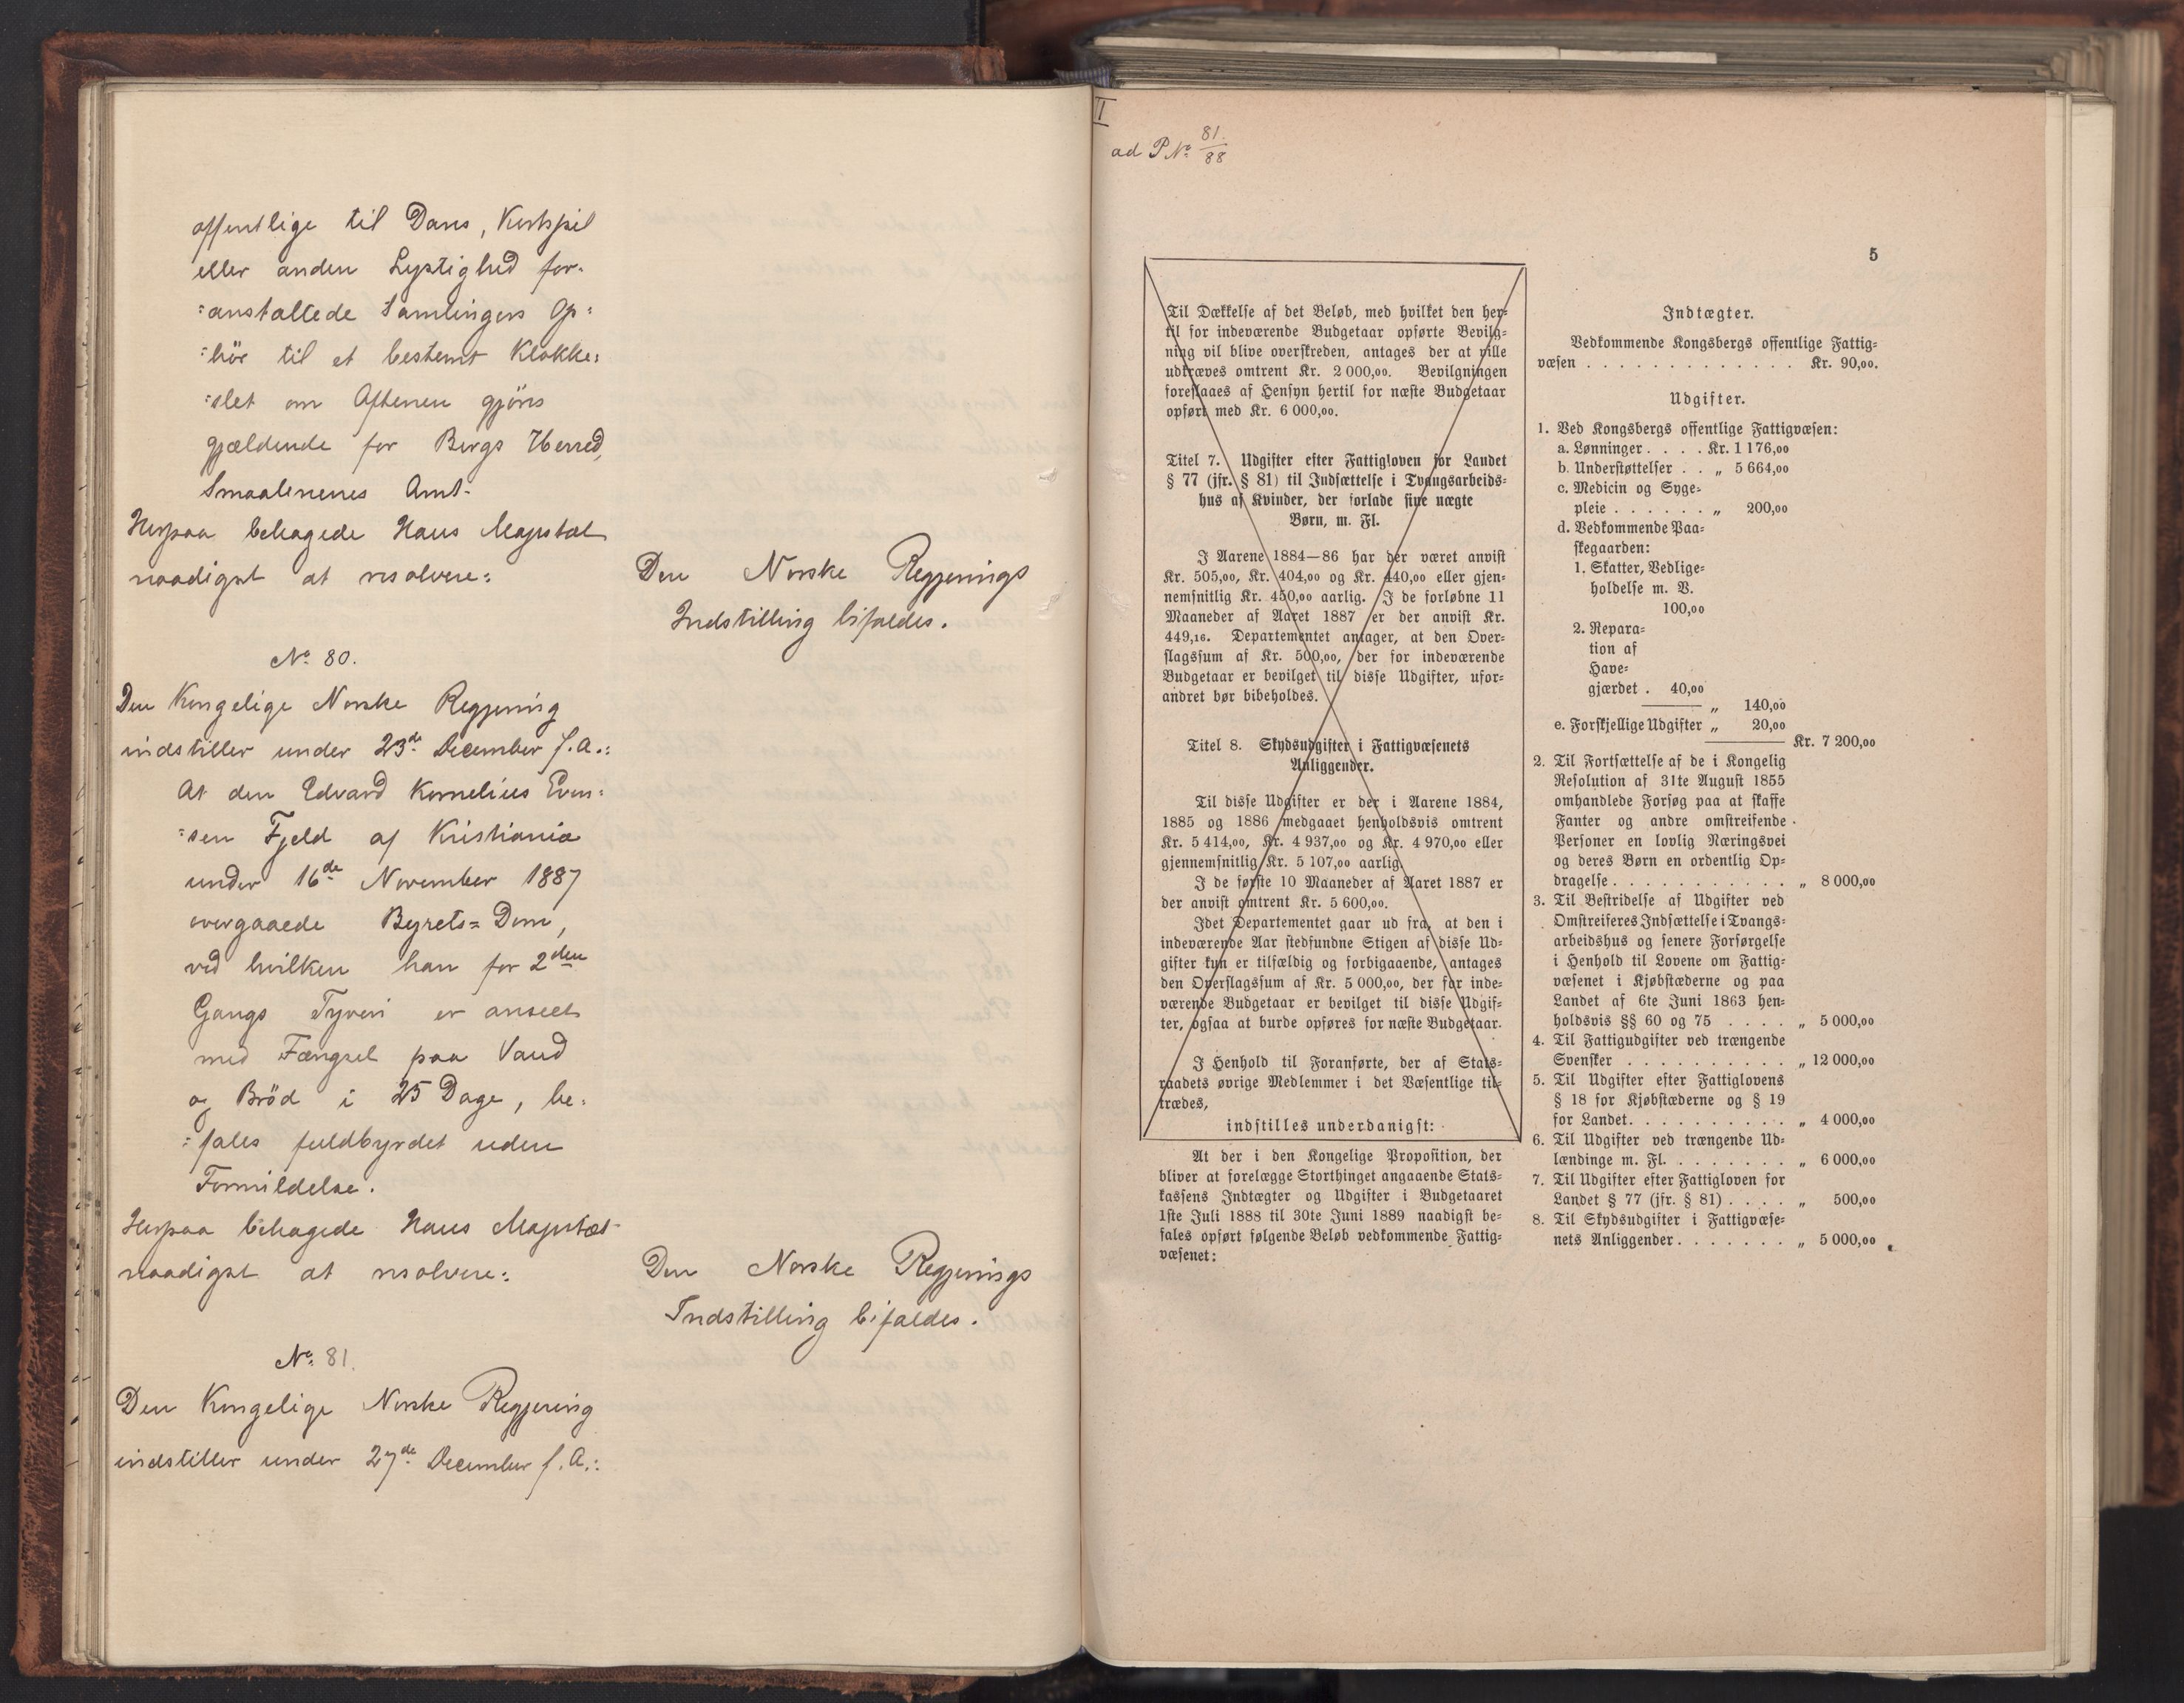 offentlige til Dans, Kortspil
eller anden Lystighed for-
:anstaltede Samlingers Op:
:hör til et bestemt Klokke:
:slet om Aftenen gjöres
gjældende for Bergs Herred,
Smaalenenes Amt.
Herpaa behagede Hans Majestæt
naadigst at resolvere:
Den Norske Regjerings
Indstilling bifaldes.
No. 80.
Den Kongelige Norske Regjering
indstiller under 23de December f. A.:
At den Edvard Kornelius Even:
:sen Fjeld af Kristiania
under 16de November 1887
overgaaede Byrets=Dom,
ved hvilken han for 2den
Gangs Tyveri er anseet
med Fængsel paa Vand
og Bröd i 25 Dage, be:
:fales fuldbyrdet uden
Formildelse.
Herpaa behagede Hans Majestæt
naadigst at resolvere:
Den Norske Regjerings
Indstilling bifaldes.
No. 81.
Den Kongelige Norske Regjering
indstiller under 27de December f. A.:
II
ad P No. 81/88
5
Til Dækkelse af det Beløb, med hvilket den her-
til for indeværende Budgetaar opførte Bevilg-
ning vil blive overskreden, antages der at ville
udkræves omtrent Kr. 2 000,00. Bevilgningen
foreslaaes af Hensyn hertil for næste Budgetaar
opført med Kr. 6 000,00.
Titel 7. Udgifter efter Fattigloven for Landet
§ 77 (jfr. § 81) til Indsættelse i Tvangsarbeids-
hus af Kvinder, der forlade sine uægte
Børn, m. Fl.
I Aarene 1884—86 har der været anvist
Kr. 505,00, Kr. 404,00 og Kr. 440,00 eller gjen-
nemsnitlig Kr. 450,00 aarlig. I de forløbne 11
Maaneder af Aaret 1887 er der anvist Kr.
449,16. Departementet antager, at den Over-
slagssum af Kr. 500,00, der for indeværende
Budgetaar er bevilget til disse Udgifter, ufor-
andret bør bibeholdes.
Titel 8. Skydsudgifter i Fattigvæsenets
Anliggender.
Til disse Udgifter er der i Aarene 1884,
1885 og 1886 medgaaet henholdsvis omtrent
Kr. 5 414,00, Kr. 4 937,00 og Kr. 4 970,00 eller
gjennemsnitlig Kr. 5 107,00 aarlig.
I de første 10 Maaneder af Aaret 1887 er
der anvist omtrent Kr. 5 600,00.
Idet Departementet gaar ud fra, at den i
indeværende Aar stedfundne Stigen af disse Ud-
gifter kun er tilfældig og forbigaaende, antages
den Overslagssum af Kr. 5 000,00, der for inde-
værende Budgetaar er bevilget til disse Udgif-
ter, ogsaa at burde opføres for næste Budgetaar.
I Henhold til Foranførte, der af Stats-
raadets øvrige Medlemmer i det Væsentlige til-
trædes,
indstilles underdanigst:
At der i den Kongelige Proposition, der
bliver at forelægge Storthinget angaaende Stats-
kassens Indtægter og Udgifter i Budgetaaret
1ste Juli 1888 til 30te Juni 1889 naadigst be-
fales opført følgende Beløb vedkommende Fattig-
væsenet:
Indtægter.
Vedkommende Kongsbergs offentlige Fattig-
væsen . . . . . . . . . . . . . Kr. 90,00.
Udgifter.
1. Ved Kongsbergs offentlige Fattigvæsen:
a. Lønninger . . . . Kr. 1 176,00
b. Understøttelser . . „ 5 664,00
c. Medicin og Syge-
pleie . . . . . . „ 200,00
d. Vedkommende Paa-
skegaarden:
1. Skatter, Vedlige-
holdelse m. V.
100,00
2. Repara-
tion af
Have-
gjærdet . 40,00
„ 140,00
e. Forskjellige Udgifter „ 20,00
Kr. 7 200,00
2. Til Fortsættelse af de i Kongelig
Resolution af 31te August 1855
omhandlede Forsøg paa at skaffe
Fanter og andre omstreifende
Personer en lovlig Næringsvei
og deres Børn en ordentlig Op-
dragelse . . . . . . . . . . . „ 8 000,00
3. Til Bestridelse af Udgifter ved
Omstreiferes Indsættelse i Tvangs-
arbeidshus og senere Forsørgelse
i Henhold til Lovene om Fattig-
væsenet i Kjøbstæderne og paa
Landet af 6te Juni 1863 hen-
holdsvis §§ 60 og 75 . . . . „ 5 000,00
4. Til Fattigudgifter ved trængende
Svensker . . . . . . . . . . „ 12 000,00
5. Til Udgifter efter Fattiglovens
§ 18 for Kjøbstæderne og § 19
for Landet . . . . . . . . . . „ 4 000,00
6. Til Udgifter ved trængende Ud-
lændinge m. Fl. . . . . . . . „ 6 000,00
7. Til Udgifter efter Fattigloven for
Landet § 77 (jfr. § 81) . . . . „ 500,00
8. Til Skydsudgifter i Fattigvæse-
nets Anliggender . . . . . . . „ 5 000,00.